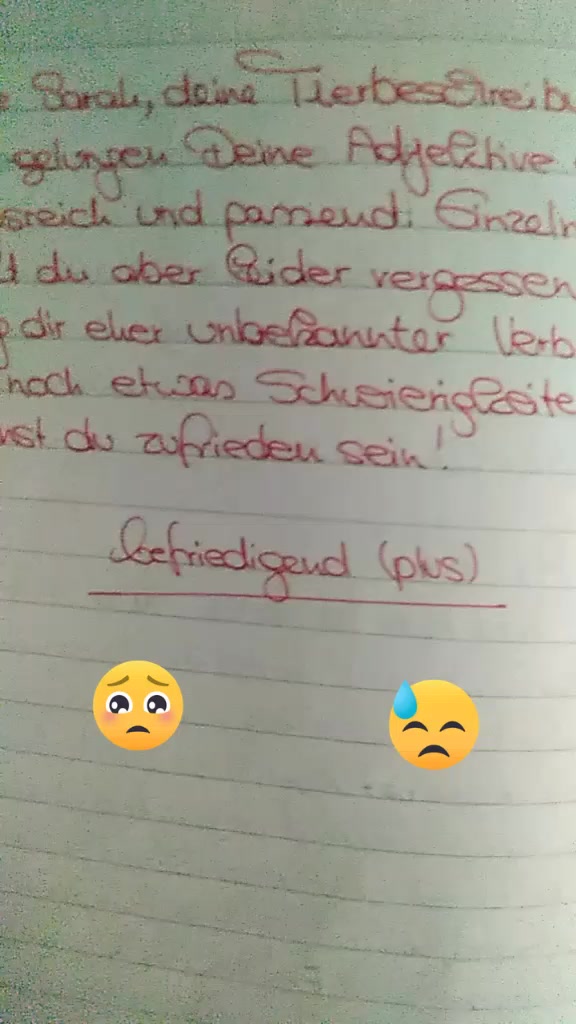 Sarah, deine Tierbeschreibu
gelungen Deine Adjektive
sreich und passend. Einzeln
t du aber leider vergessen
g dir eher unbekannter Verb
noch etwas Schwierigkeite
nst du zufrieden sein!
befriedigend (plus)